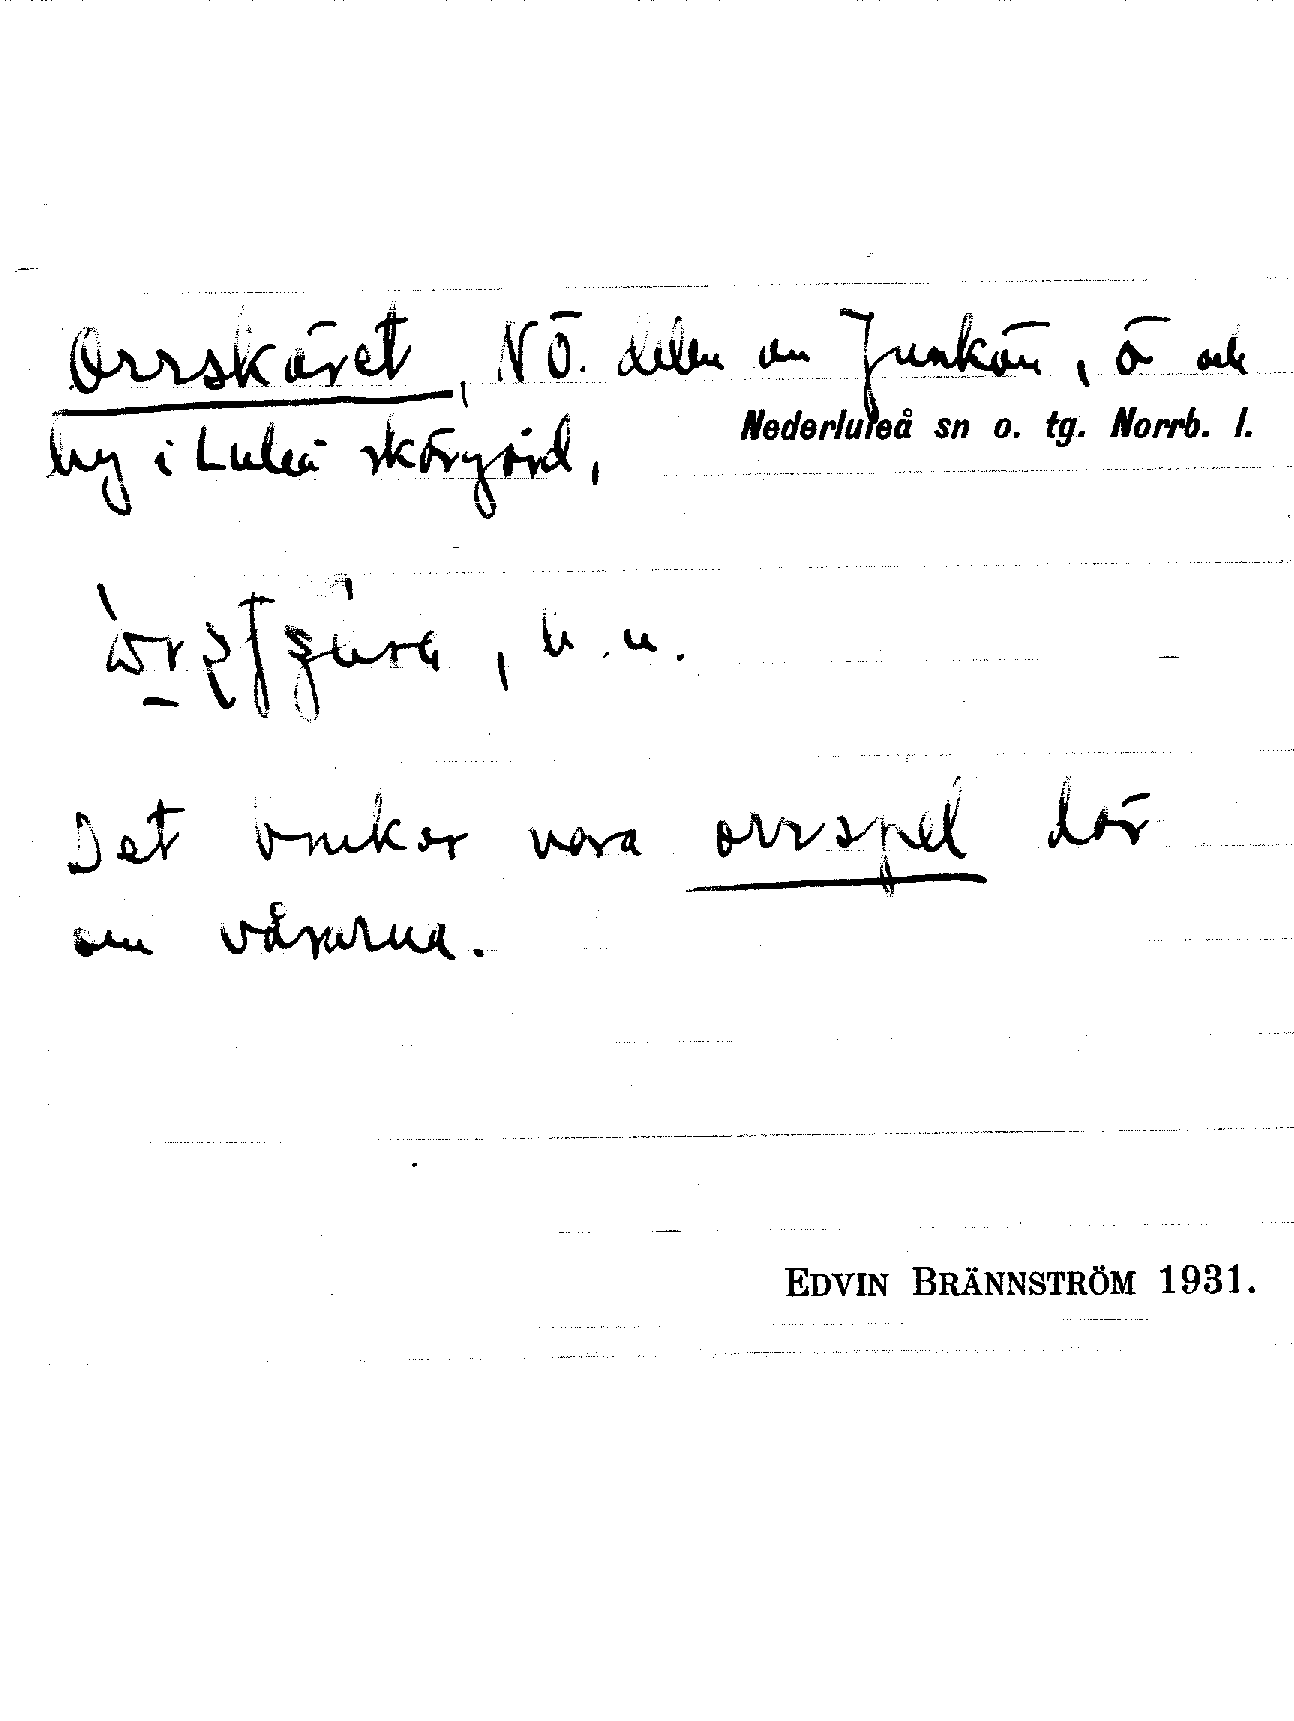 Orrskäret, NÖ. delen av Junkön, ö och
Nederluleå sn o. tg. Norrb. l.
by i Luleå skärgård,
n.
Det brukar vara orrspel där
om vårarna.
EDVIN BRÄNNSTRÖM 1931.